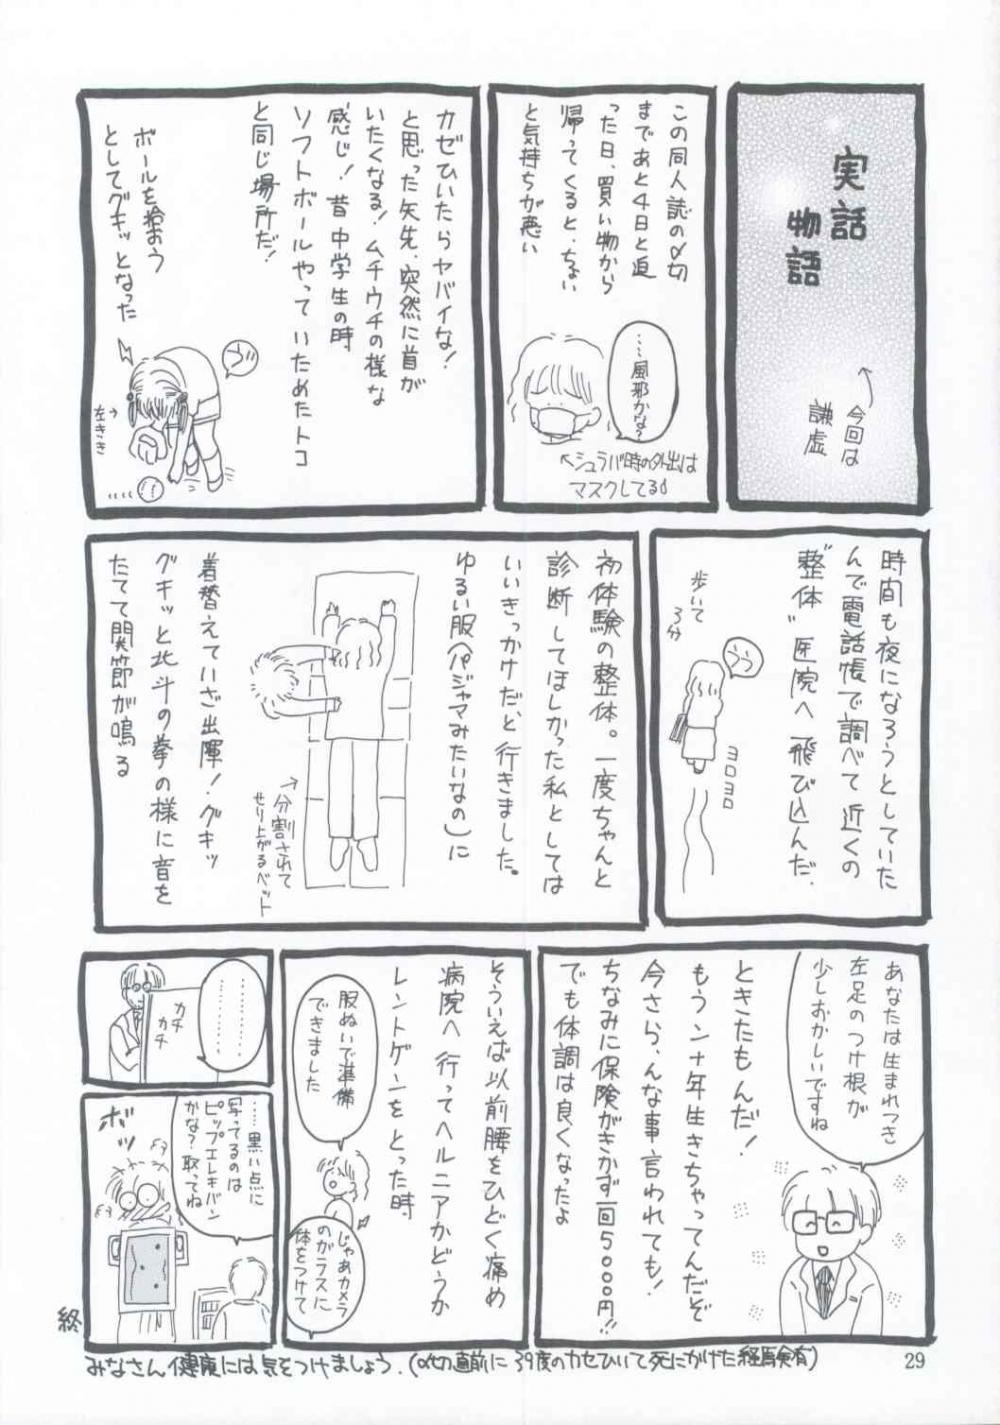 実話
物語
←今回は
謙虚
この同人誌の〆切
まであと4日と迫
った日、買い物から
帰ってくると、ちょい
と気持ちが悪い
……風邪かな?
←シュラバ時の外出は
マスクしてる
カゼひいたらヤバイな!
と思った矢先、突然に首が
いたくなる!ムチウチの様な
感じ!昔中学生の時
ソフトボールやっていためたトコ
と同じ場所だ!
ボールを拾おう
としてグキッとなった
うっ
左きき→
時間も夜になろうとしていた
んで電話帳で調べて近くの
"整体"医院へ飛び込んだ.
歩いて
3分
うう
ヨロヨロ
初体験の整体。一度ちゃんと
診断してほしかった私としては
いいきっかけだ、と行きました。
ゆるい服(パジャマみたいなの)に
→分割されて
せり上がるベット
着替えていざ出陣!グキッ
グキッと北斗の拳の様に音を
たてて関節が鳴る
あなたは生まれつき
左足のつけ根が
少しおかしいですね
ときたもんだ!
もうン十年生きちゃってんだぞ
今さら、んな事言われても!
ちなみに保険がきかず一回5000円!!
でも体調は良くなったよ
そういえば以前腰をひどく痛め
病院へ行ってヘルニアかどうか
レントゲンをとった時
服ぬいで準備
できました
じゃあカメラ
のガラスに
体をつけて
…………
…………
カチ
カチ
……黒い点に
写ってるのは
ピップエレキバン
かな?取ってね
ボッ
終
みなさん健康には気をつけましょう.(〆切直前に39度のカゼひいて死にかけた経験有)
29